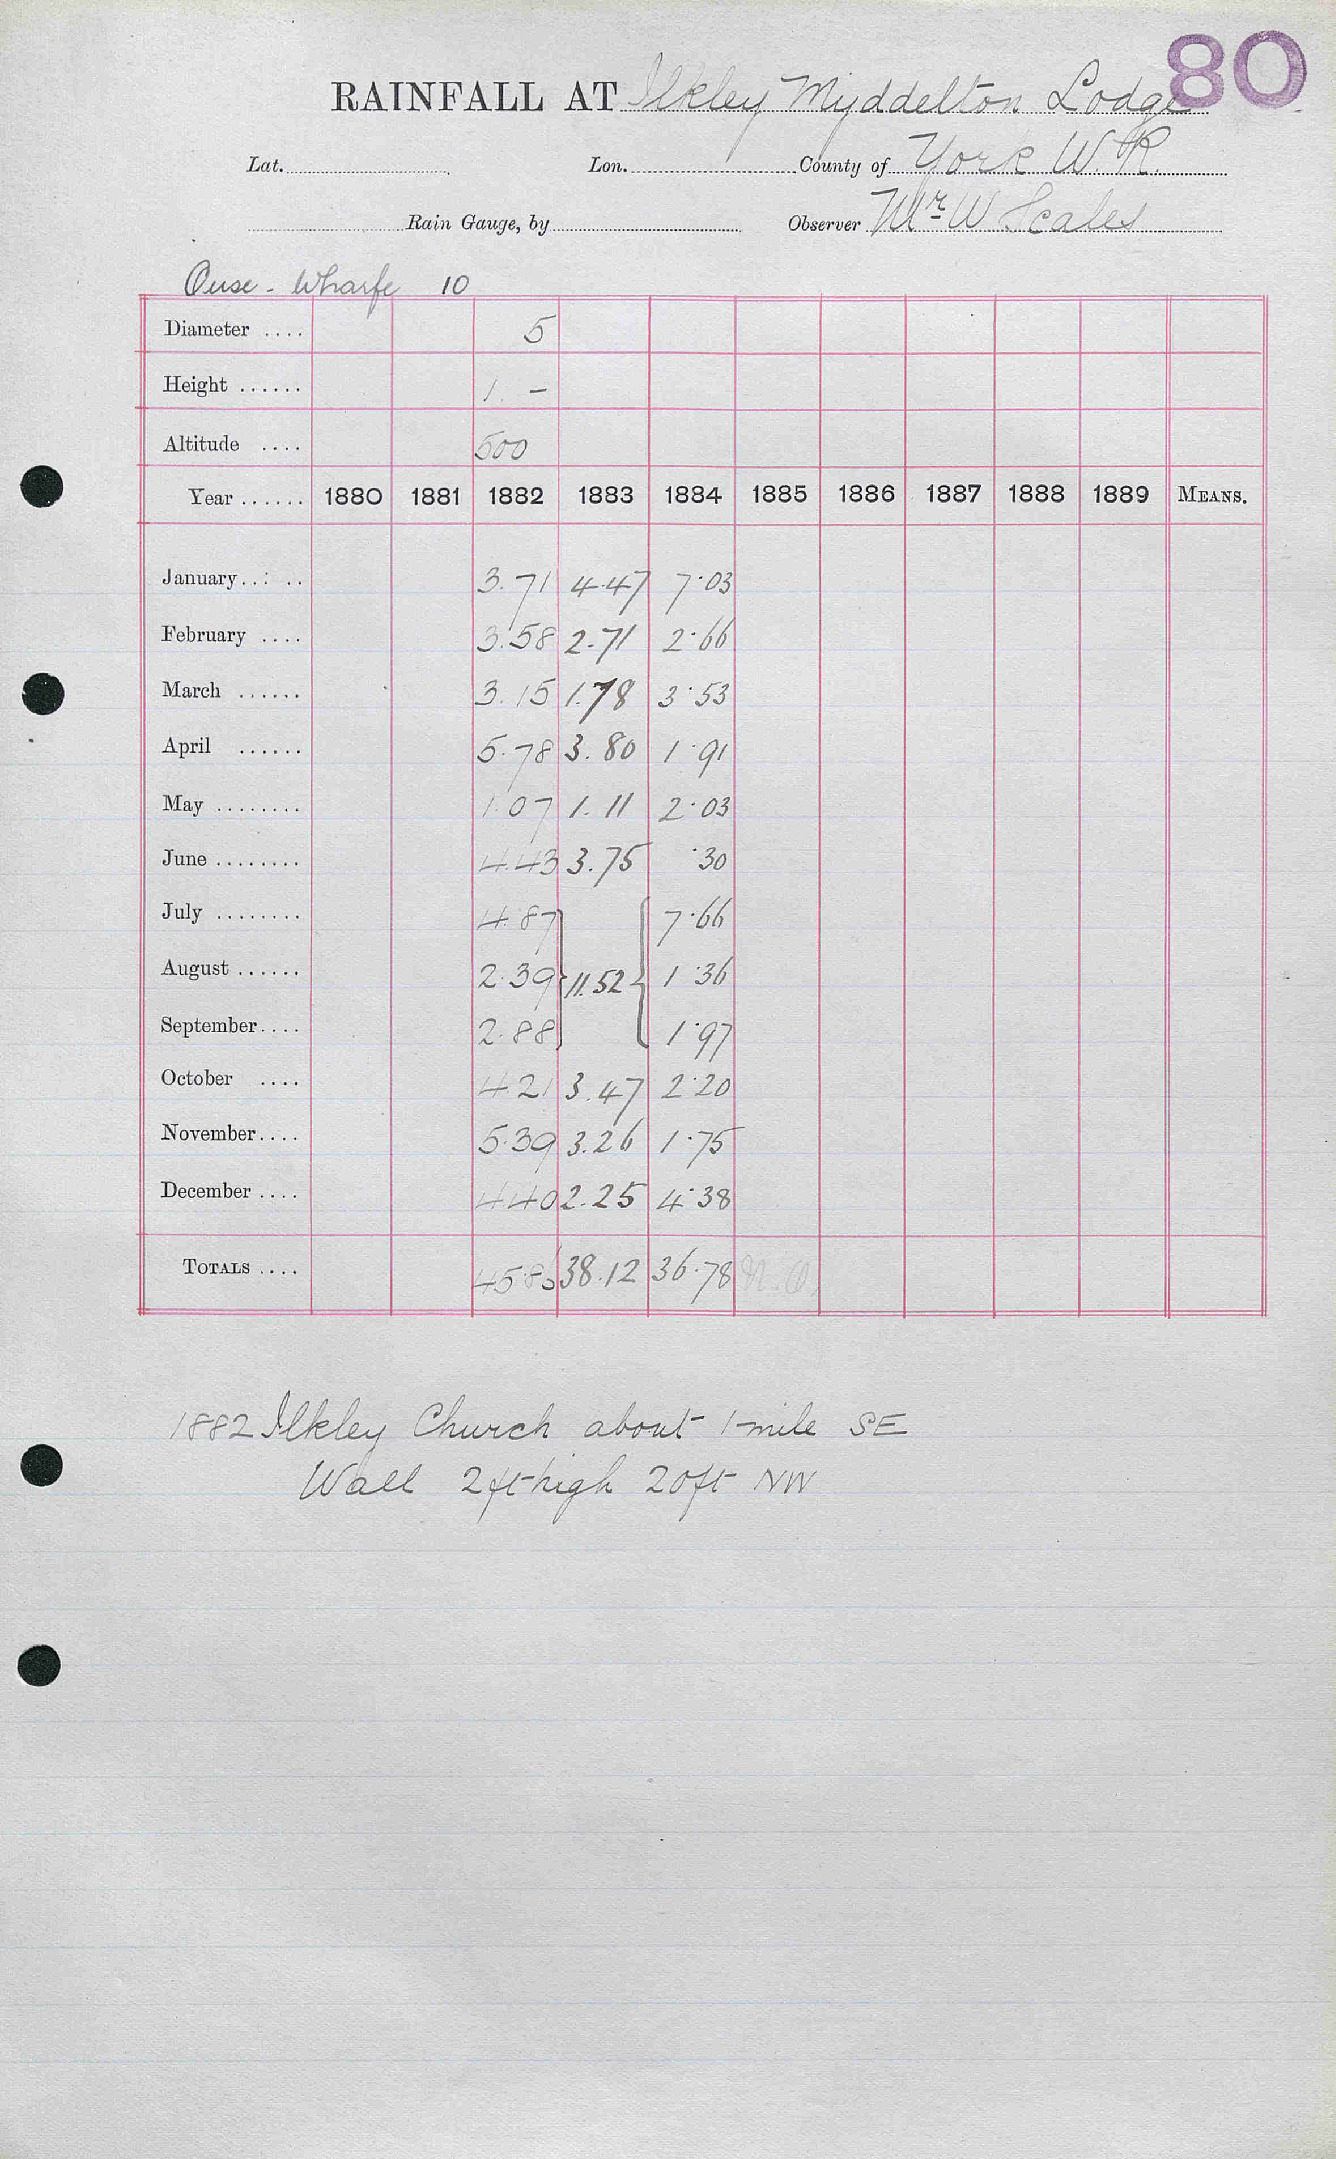 80
RAINFALL AT Ilkley Myddelton Lodge
Lat. Lon. County of York W.R.
Rain Gauge, by Observer Mr W Scales
Ouse - Wharfe 10
Diameter .... 5
Height ...... 1. -
Altitude .... 500
Year ...... 1880 1881 1882 1883 1884 1885 1886 1887 1888 1889 MEANS.
January.... 3.71 4.47 7.03
February .... 3.58 2.71 2.66
March ...... 3.15 1.78 3.53
April ...... 5.78 3.80 1.91
May ........ 1.07 1.11 2.03
June ........ 4.43 3.75 .30
July ........ 4.87 7.66
August ...... 2.39 11.52 1.36
September.... 2.88 1.97
October .... 4.21 3.47 2.20
November.... 5.39 3.26 1.75
December .... 4.40 2.25 4.38
TOTALS .... 45.86 38.12 36.78 N.O.
1882 Ilkley Church about 1 mile SE
Wall 2ft high 20ft NW